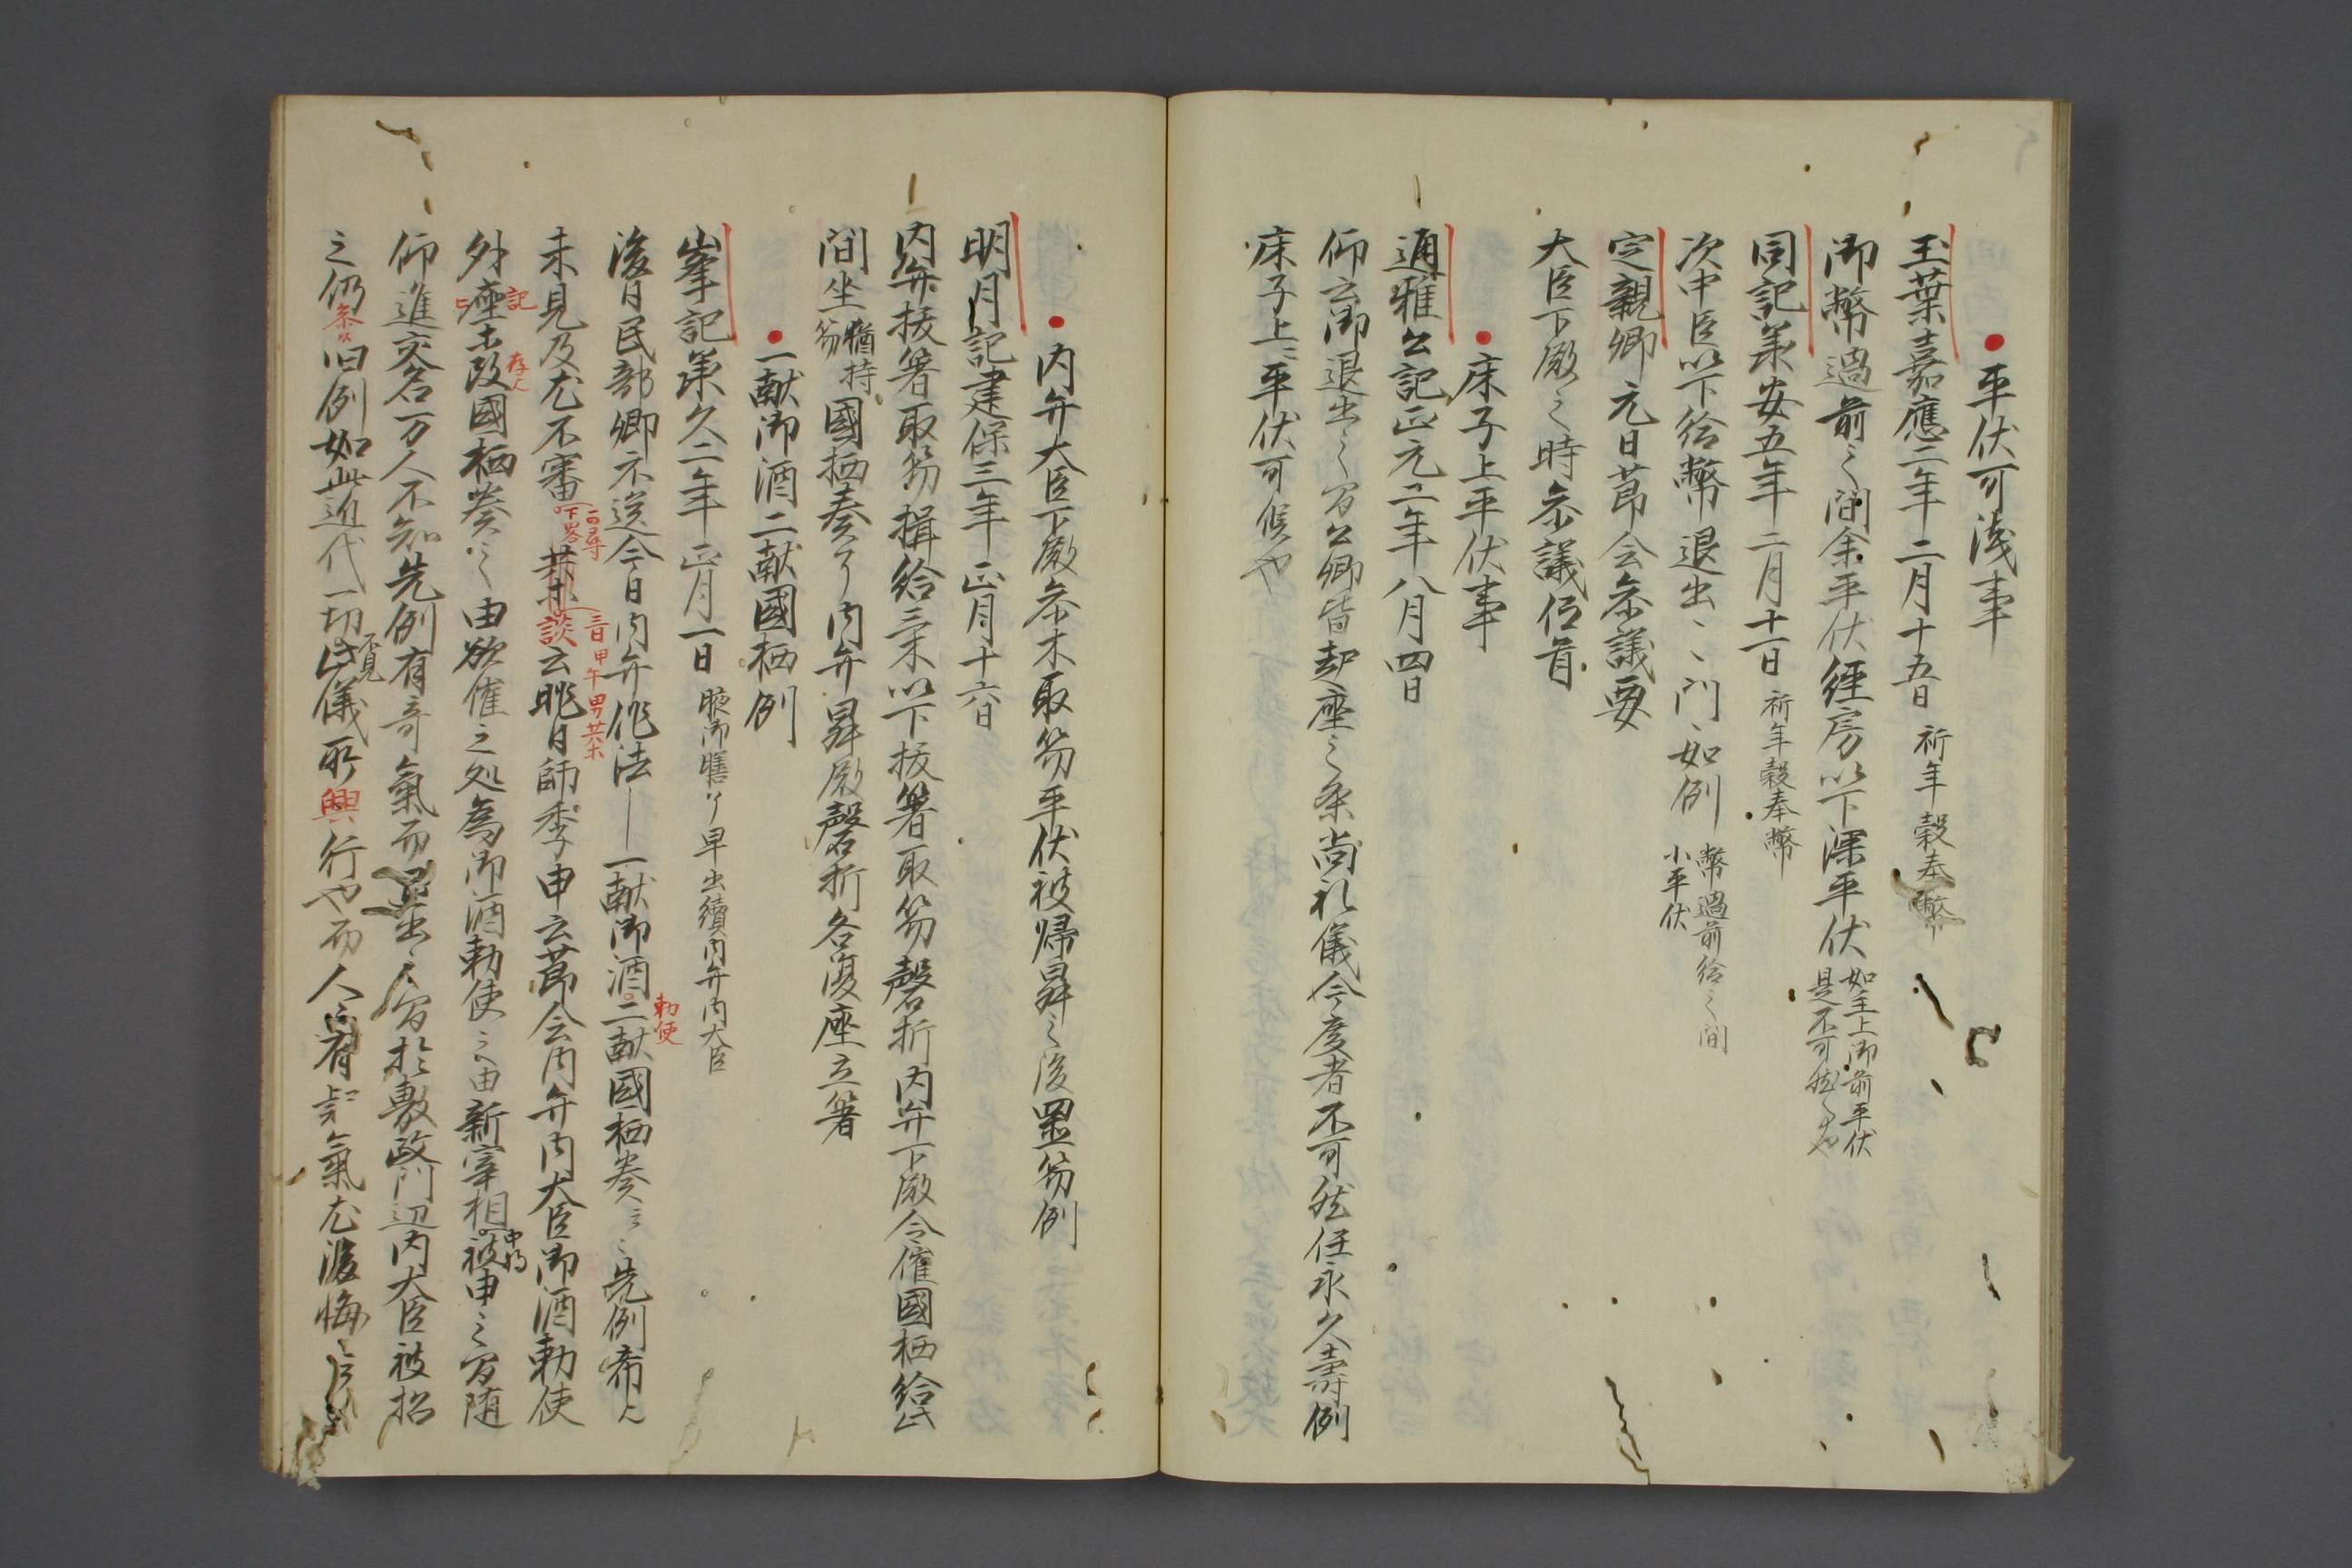 平伏可淺事
玉葉嘉應二年二月十五日 祈年穀奉幣
御幣過前之間余平伏経房以下深平伏 如主上御前平伏
是不可然々
同記承安五年二月十一日 祈年穀奉幣
次中臣以下給幣退出々門如例 幣過前給之間
小平伏
定親卿元日節会参議要
大臣下殿之時参議伝首
床子上平伏事
通雅公記正元二年八月四日
仰云御退出之間公卿皆起座之条尚礼儀今度者不可然任永久壽例
床子上平伏可候也
内弁大臣下殿参木取笏平伏被帰昇之後置笏例
明月記建保三年正月十六日
内弁抜箸取笏揖給二条以下抜箸取笏磬折内弁下殿令催國栖給此
間坐 猶持
笏 國栖奏了内弁昇殿磬折各復座立箸
一献御酒二献國栖例
峯記承久二年正月一日 腋御膳了早出續内弁内大臣
後日民部卿示送今日内弁作法 一献御酒二献國栖奏云々先例希
勅使
未見及尤不審 下畧 業 談云昨日師季申云節会内弁内大臣御酒勅使
三日甲午男共業
外 記 存 改國栖奏之由欲催之処為御酒勅使之由新宰相 中将 被申之間随
仰進交名万人不知先例有奇氣而 出之間於敷政門辺内大臣被招
之仍 旧例如此近代一切 不見 此儀所興行也而人 有 氣尤後悔